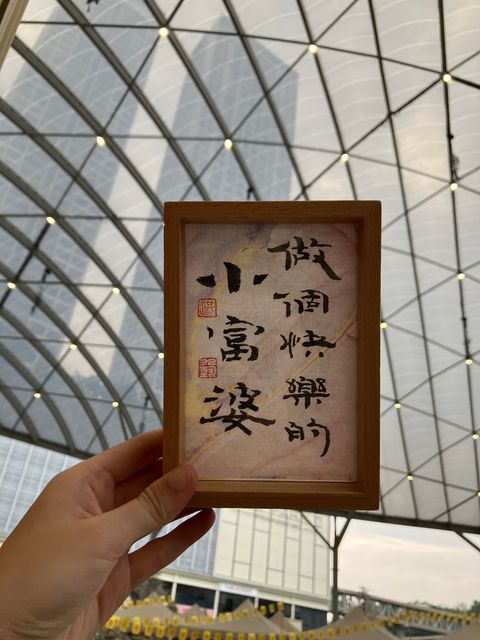 做個快樂的
小富婆